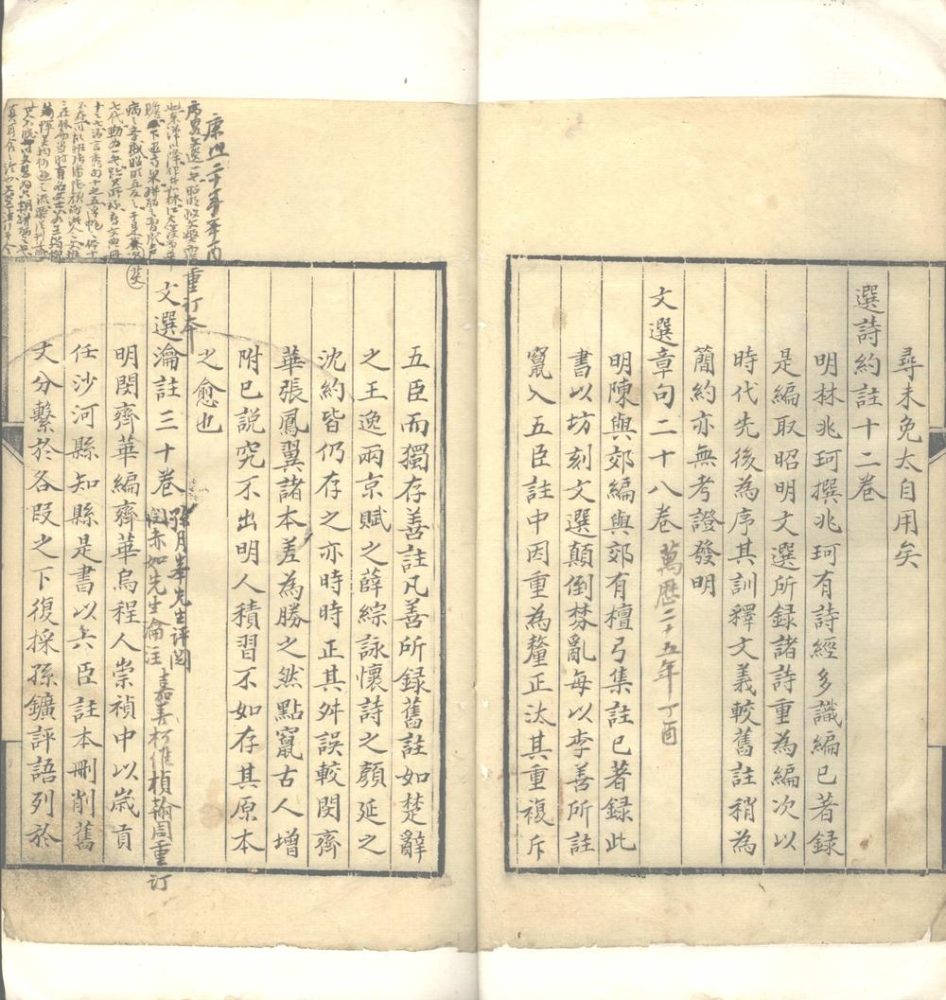 尋未免太自用矣
選詩約註十二卷
明林兆珂撰兆珂有詩經多識編已著録
是編取昭明文選所録諸詩重為編次以
時代先後為序其訓釋文義較舊註稍為
簡約亦無考證發明
文選章句二十八卷 萬歷二十五年丁酉
明陳與郊編與郊有檀弓集註已著録此
書以坊刻文選顛倒棼亂每以李善所註
竄入五臣註中因重為釐正汰其重複斥
五臣而獨存善註凡善所録舊註如楚辭
之王逸兩京賦之薛綜詠懷詩之顏延之
沈約皆仍存之亦時時正其舛誤較閔齊
華張鳳翼諸本差為勝之然點竄古人增
附已説究不出明人積習不如存其原本
之愈也
康熙二十年辛酉
重订本
文選瀹註三十卷
孫月峯先生评閱
閔赤如先生瀹注
嘉善柯維楨翰周重订
明閔齊華編齊華烏程人崇禎中以歲貢
任沙河縣知縣是書以六臣註本刪削舊
文分繫於各段之下復採孫鑛評語列於